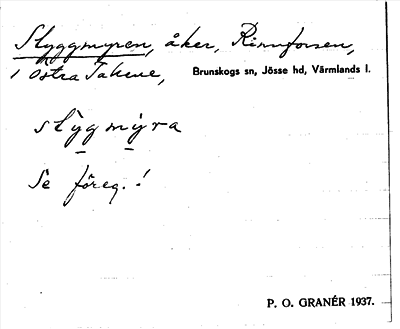 Slyggmyren, åker, Rinnforsen,
i Östra Takene, Brunskogs sn, Jösse hd, Värmlands l.
slỳgmỳra
Se föreg.!
P. O. GRANÉR 1937.